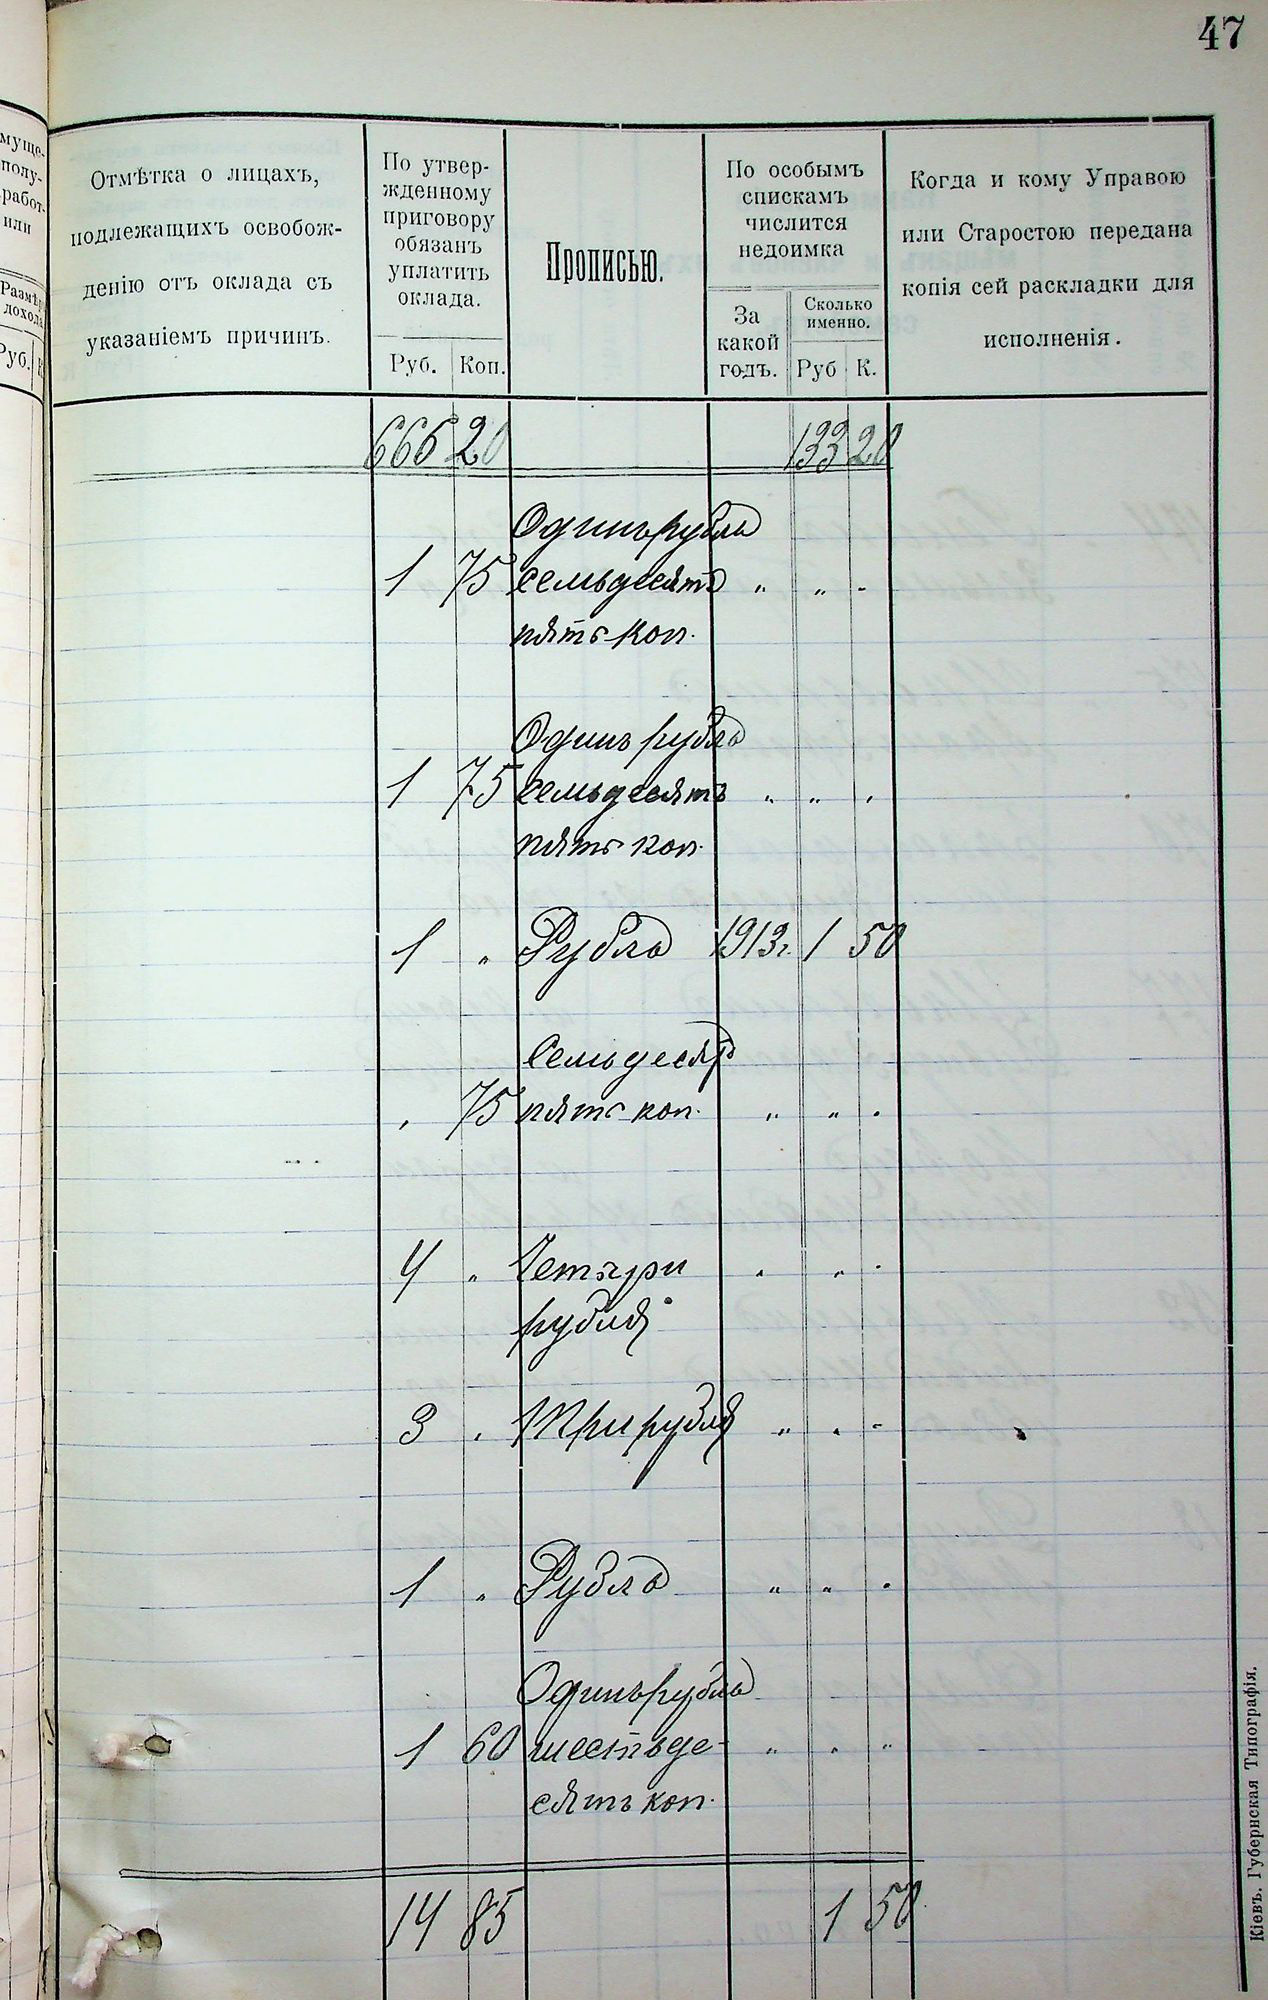 47
муще-
полу-
работ-
или
Размѣръ
дохода
Руб.
Отмѣтка о лицахъ,
подлежащихъ освобож-
денію отъ оклада съ
указаніемъ причинъ.
По утвер-
жденному
приговору
обязанъ
уплатить
оклада.
Руб. Коп.
Прописью.
По особымъ
спискамъ
числится
недоимка
За
какой
годъ.
Сколько
именно.
Руб К.
Когда и кому Управою
или Старостою передана
копія сей раскладки для
исполненія.
666 20 133 20
Одинъ рубль
1 75 семьдесятъ " " "
пять коп.
Одинъ рубль
1 75 семьдесятъ " " "
пять коп.
1 " Рубль 1913г. 1 50
Семьдесят
" 75 пять коп. " " "
4 " Четыри " " "
рубля
3 " Три рубля " " "
1 " Рубль " " "
Одинъ рубль
1 60 шестьде- " " "
сятъ коп.
14 85 1 50
Кіевъ. Губернская Типографія.